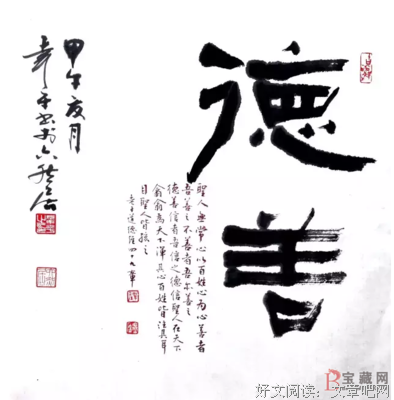 德善
聖人無常心以百姓心為心善者
吾善之不善者吾亦善之
德善信者吾信之德信聖人在天下
為天下渾其心百姓皆注其耳
目聖人皆孩之
老子道德經四十九章
甲午夏月
平書於居
宝藏网
好文阅读：文章吧网